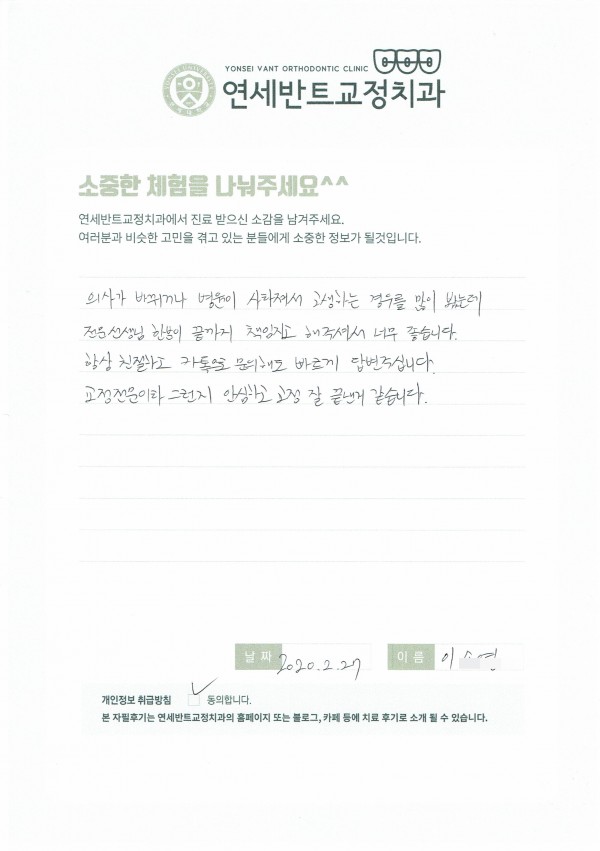 YONSEI VANT ORTHODONTIC CLINIC
연세반트교정치과
소중한 체험을 나눠주세요^^
연세반트교정치과에서 진료 받으신 소감을 남겨주세요.
여러분과 비슷한 고민을 겪고 있는 분들에게 소중한 정보가 될것입니다.
의사가 바뀌거나 병원이 사라져서 고생하는 경우를 많이 봤는데
전문선생님 한분이 끝까지 책임지고 해주셔서 너무 좋습니다.
항상 친절하고 카톡으로 문의해도 바르게 답변주십니다.
교정전문이라 그런지 안심하고 교정 잘 끝낸거 같습니다.
날짜 2020.2.27 이름 이 연
개인정보 취급방침 동의합니다.
본 자필후기는 연세반트교정치과의 홈페이지 또는 블로그, 카페 등에 치료 후기로 소개 될 수 있습니다.